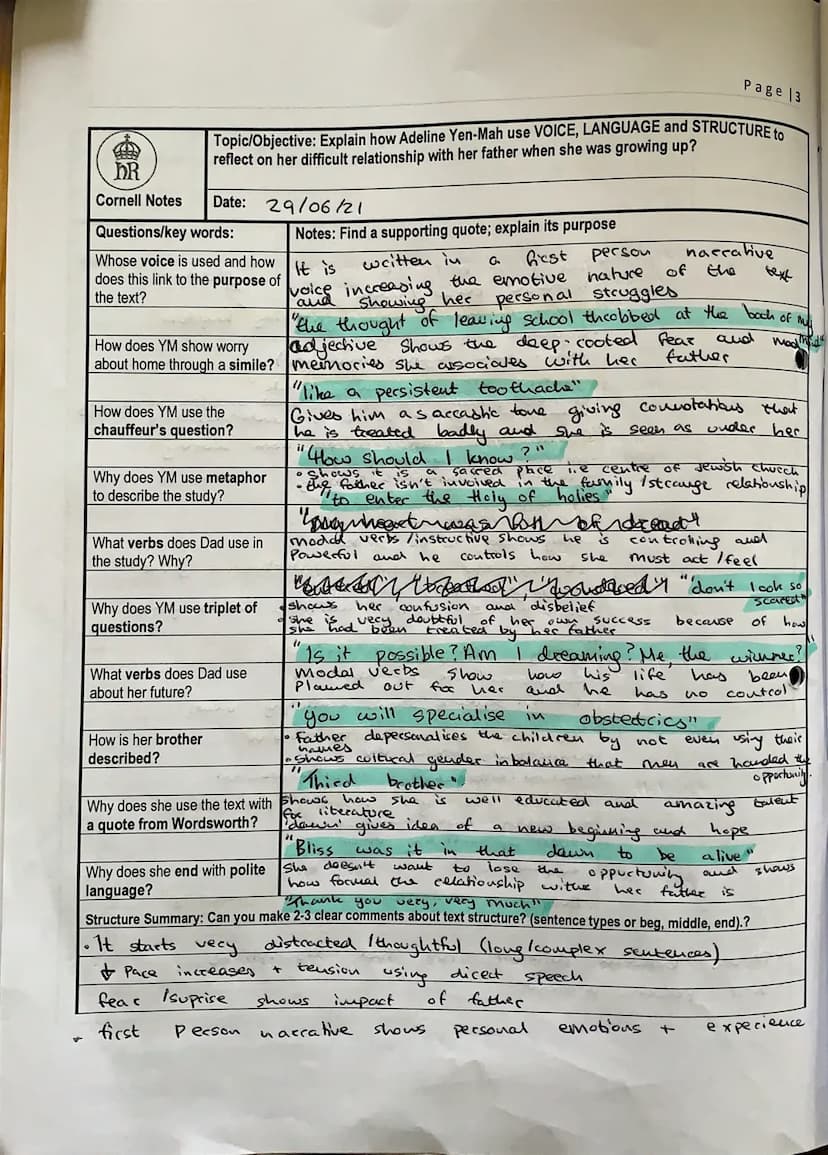 Page |3
Topic/Objective: Explain how Adeline Yen-Mah use VOICE, LANGUAGE and STRUCTURE to
reflect on her difficult relationship with her father when she was growing up?
hR
Cornell Notes
Date: 29/06/21
Questions/key words:
Notes: Find a supporting quote; explain its purpose
Whose voice is used and how
does this link to the purpose of
the text?
It is written in a first person narrative
voice increasing the emotive nature of the text
and showing her personal struggles
"the thought of leaving school throbbed at the back of my
mind"
How does YM show worry
about home through a simile?
adjective shows the deep-rooted fear and
memories she associates with her father
"like a persistent toothache"
How does YM use the
chauffeur's question?
Gives him a sarcastic tone giving connotations that
he is treated badly and she is seen as under her
"How should I know?"
Why does YM use metaphor
to describe the study?
• shows it is a sacred place i.e centre of Jewish church
• the father isn't involved in the family /strange relationship
"to enter the Holy of holies"
What verbs does Dad use in
the study? Why?
modal verbs /instructive shows he is controlling and
Powerful and he controls how she must act /feel
"don't look so
scared"
Why does YM use triplet of
questions?
• shows her confusion and disbelief
• she is very doubtful of her own success because of how
she had been treated by her father
"Is it possible? Am I dreaming? Me, the winner?"
What verbs does Dad use
about her future?
modal verbs show how his life has been
Planned out for her and he has no control
"you will specialise in obstetrics"
How is her brother
described?
• Father depersonalises the children by not even using their
names
• shows cultural gender inbalance that men are handed the
opportunity.
"Third brother"
Why does she use the text with
a quote from Wordsworth?
shows how she is well educated and amazing talent
for literature
'dawn' gives idea of a new beginning and hope
"Bliss was it in that dawn to be alive"
Why does she end with polite
language?
she doesn't want to lose the opportunity and shows
how formal the relationship with her father is
"Thank you very, very much"
Structure Summary: Can you make 2-3 clear comments about text structure? (sentence types or beg, middle, end).?
• It starts very distracted /thoughtful (long/complex sentences)
Pace increases + tension using direct speech
fear /suprise shows impact of father
first Person narrative shows personal emotions + experience